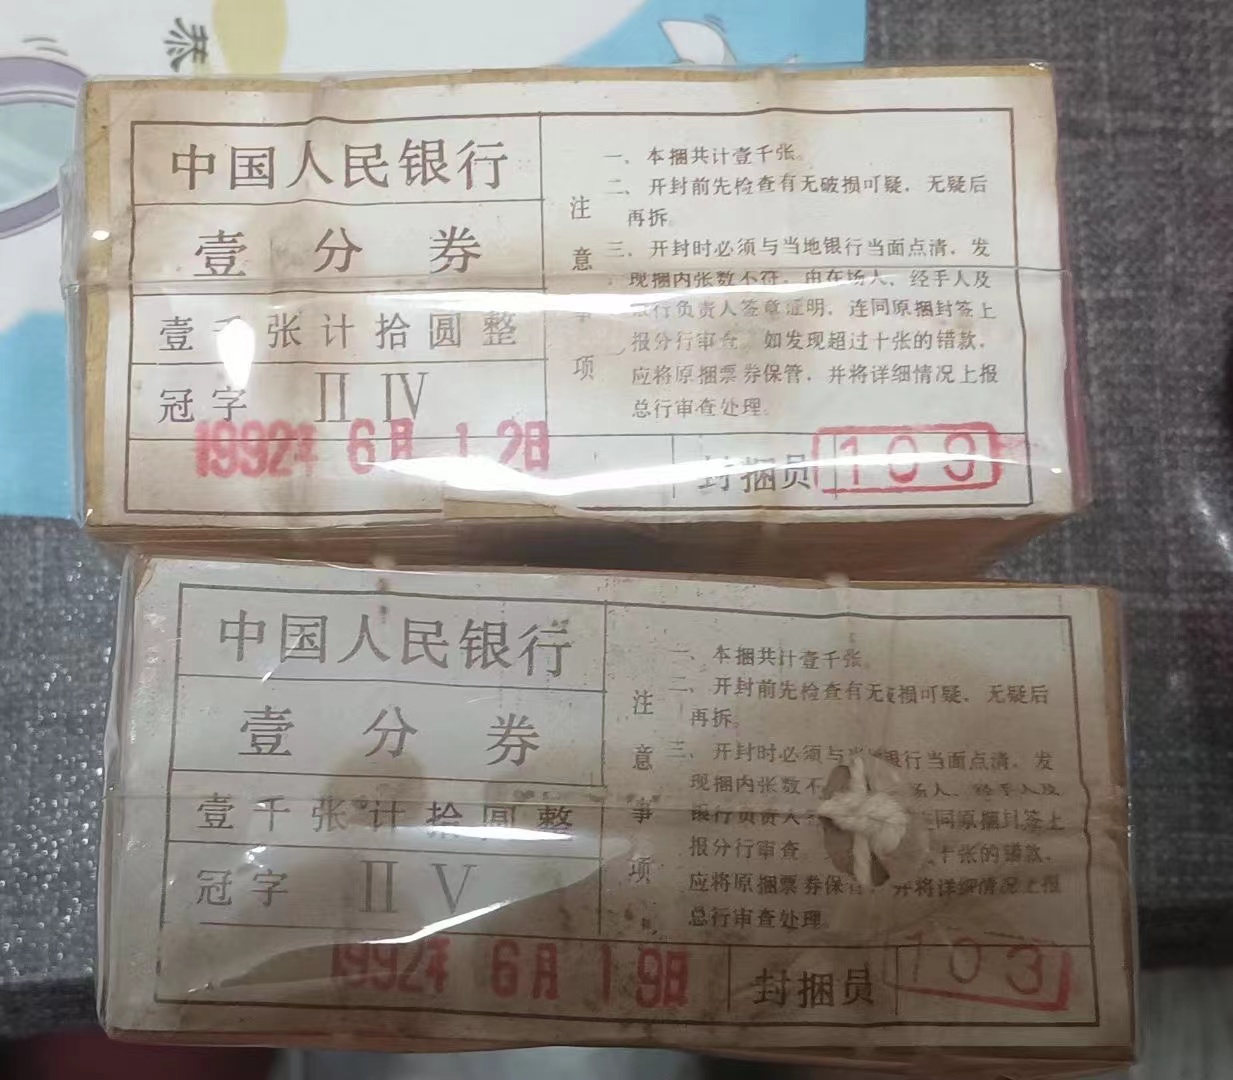 恭
中国人民银行
壹分券
壹千张计拾圆整
冠字 ⅡⅣ
1992年6月12日
注意事项
一、本捆共计壹千张。
二、开封前先检查有无破损可疑，无疑后
再拆。
三、开封时必须与当地银行当面点清，发
现捆内张数不符，由在场人、经手人及
银行负责人签章证明，连同原捆封签上
报分行审查。如发现超过十张的错款，
应将原捆票券保管，并将详细情况上报
总行审查处理。
封捆员 103
中国人民银行
壹分券
壹千张计拾圆整
冠字 ⅡⅤ
1992年6月19日
注意事项
一、本捆共计壹千张。
二、开封前先检查有无破损可疑，无疑后
再拆。
三、开封时必须与当地银行当面点清，发
现捆内张数不 场人、经手人及
银行负责人 连同原捆封签上
报分行审查。 十张的错款，
应将原捆票券保管 并将详细情况上报
总行审查处理。
封捆员 103